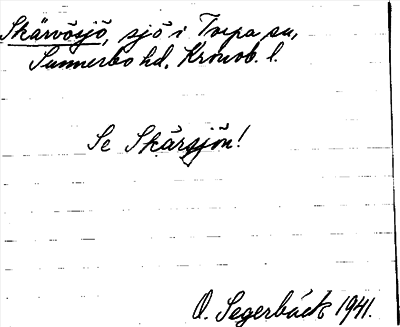 Skärvösjö, sjö i Torpa sn,
Sunnerbo hd, Kronob. l.
Se Skärsjön!
O. Segerbäck 1941.